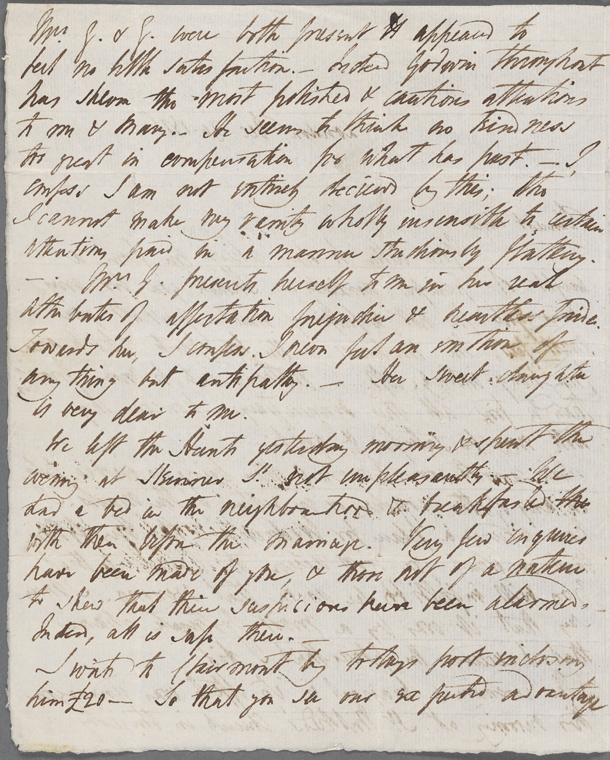 Mrs. G. & G. were both present & appeared to
feel no little satisfaction.— Indeed Godwin throughout
has shewn the most polished & cautious attentions
to me & Mary.— He seems to think no kindness
too great in compensation for what has past.— I
confess I am not entirely deceived by this; tho
I cannot make my vanity wholly insensible to certain
attentions paid in a manner studiously flattering.
— Mrs. G. presents herself to me in her real
attributes of affectation prejudice & heartless pride.
Towards her, I confess I never feel an emotion of
any thing but antipathy.— Her sweet daughter
is very dear to me.
We left the Hunts yesterday morning & spent the
evening at Skinner St. not unpleasantly — We
had a bed in the neighbourhood & breakfasted
with them before the marriage. Very few inquires
have been made of you, & those not of a nature
to shew that their suspicions have been alarmed.
Indeed, all is safe there.—
I write to Clairmont by todays post inclosing
him £20— So that you see our expected advantage